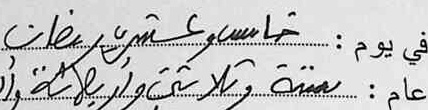 في يوم : خامس وعشرين رمضان
عام : ستة وثلاثين وأربعمائة